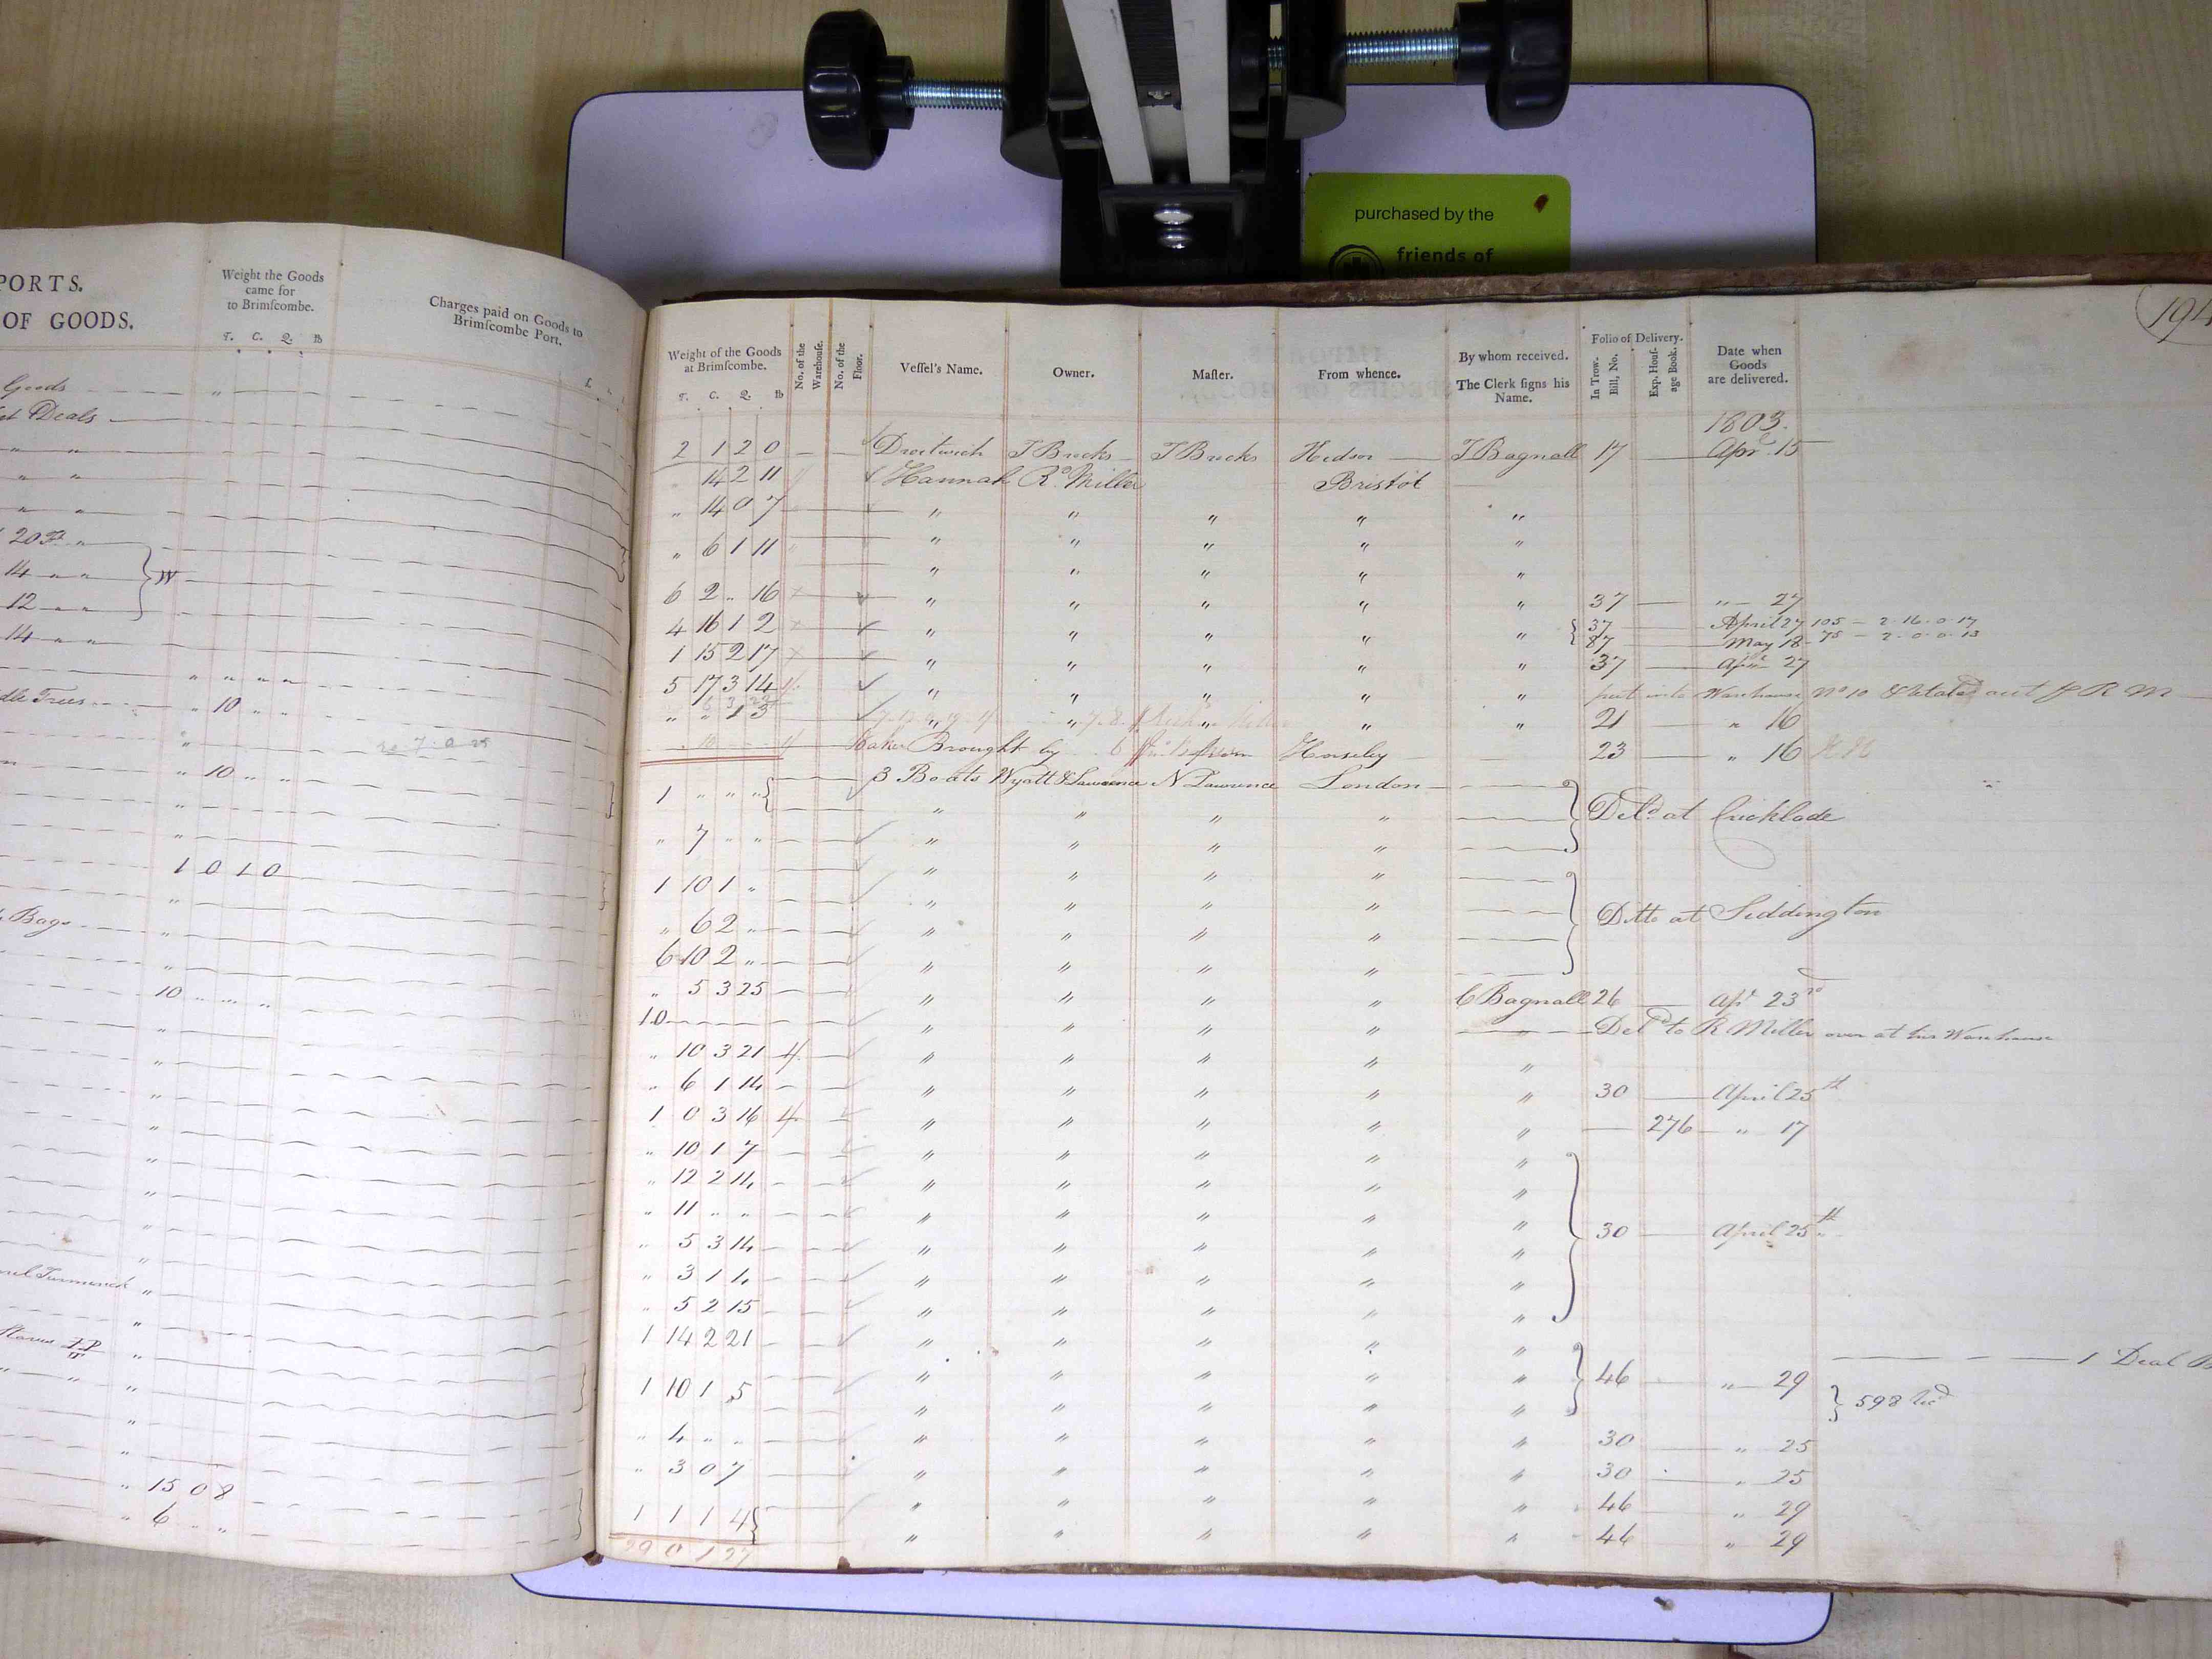 purchased by the
friends of
PORTS.
OF GOODS.
Weight the Goods
came for
to Brimſcombe.
T. C. Q. lb
Charges paid on Goods to
Brimſcombe Port.
£
Goods
Deals
20 Ft "
14 " "
12 " "
14 " "
" " " "
dle Trees " 10 " "
" 10 " "
1 0 1 0
Bags
10 " " "
Turmerick "
" 15 0 8
" 6 " "
194
Weight of the Goods
at Brimſcombe.
T. C. Q. lb
No. of the
Warehouſe.
No. of the
Floor.
Veſſel's Name.
Owner.
Maſter.
From whence.
By whom received.
The Clerk ſigns his
Name.
Folio of Delivery.
In Trow.
Bill, No.
Exp. Houſ-
age Book.
Date when
Goods
are delivered.
1803.
2 1 2 0 Droitwich T Bucks T Bucks Hedson T Bagnall 17 Apr 15
14 2 11 Hannah Rd. Miller Bristol
" 14 0 7 " " " " "
" 6 1 11 " " " " "
" " " " "
6 2 " 16 " " " " " 37 " 27
4 16 1 2 " " " " " 37 April 27 105 - 2. 16. 0. 17
87 May 18 - 75 - 2. 0. 0. 13
1 15 2 17 " " " " " 37 Apr 27
5 17 3 14 " " " " " put into Warehouse No 10 R M
" " 1 3 " " " " " 21 " 16
Brought by from Horseley 23 " 16
1 " " " 3 Boats Wyatt & Lawrence N Lawrence London
" " " "
Deld at Cricklade
" 7 " " " " " "
" " " "
1 10 1 " " " " "
" 6 2 " " " " "
Ditto at Siddington
6 10 2 " " " " "
" 5 3 25 " " " " C Bagnall 26 Apr 23rd
10 " " " " " Deld to R Miller over at his Warehouse
" 10 3 21 4 " " " " "
" 6 1 14 " " " " " 30 April 25th
1 0 3 16 4 " " " " " 276 " 17
" 10 1 7 " " " " "
" 12 2 14 " " " " "
" 11 " " " " " " "
" 5 3 14 " " " " " 30 April 25th
" 3 1 4 " " " " "
" 5 2 15 " " " " "
1 14 2 21 " " " " "
1 Deal
1 10 1 5 " " " " " 46 " 29
" " " " " 598
" 4 " " " " " " " 30 " 25
" 3 0 7 " " " " " 30 " 25
1 1 1 4 " " " " " 46 " 29
" " " " " 46 " 29
29 0 1 27